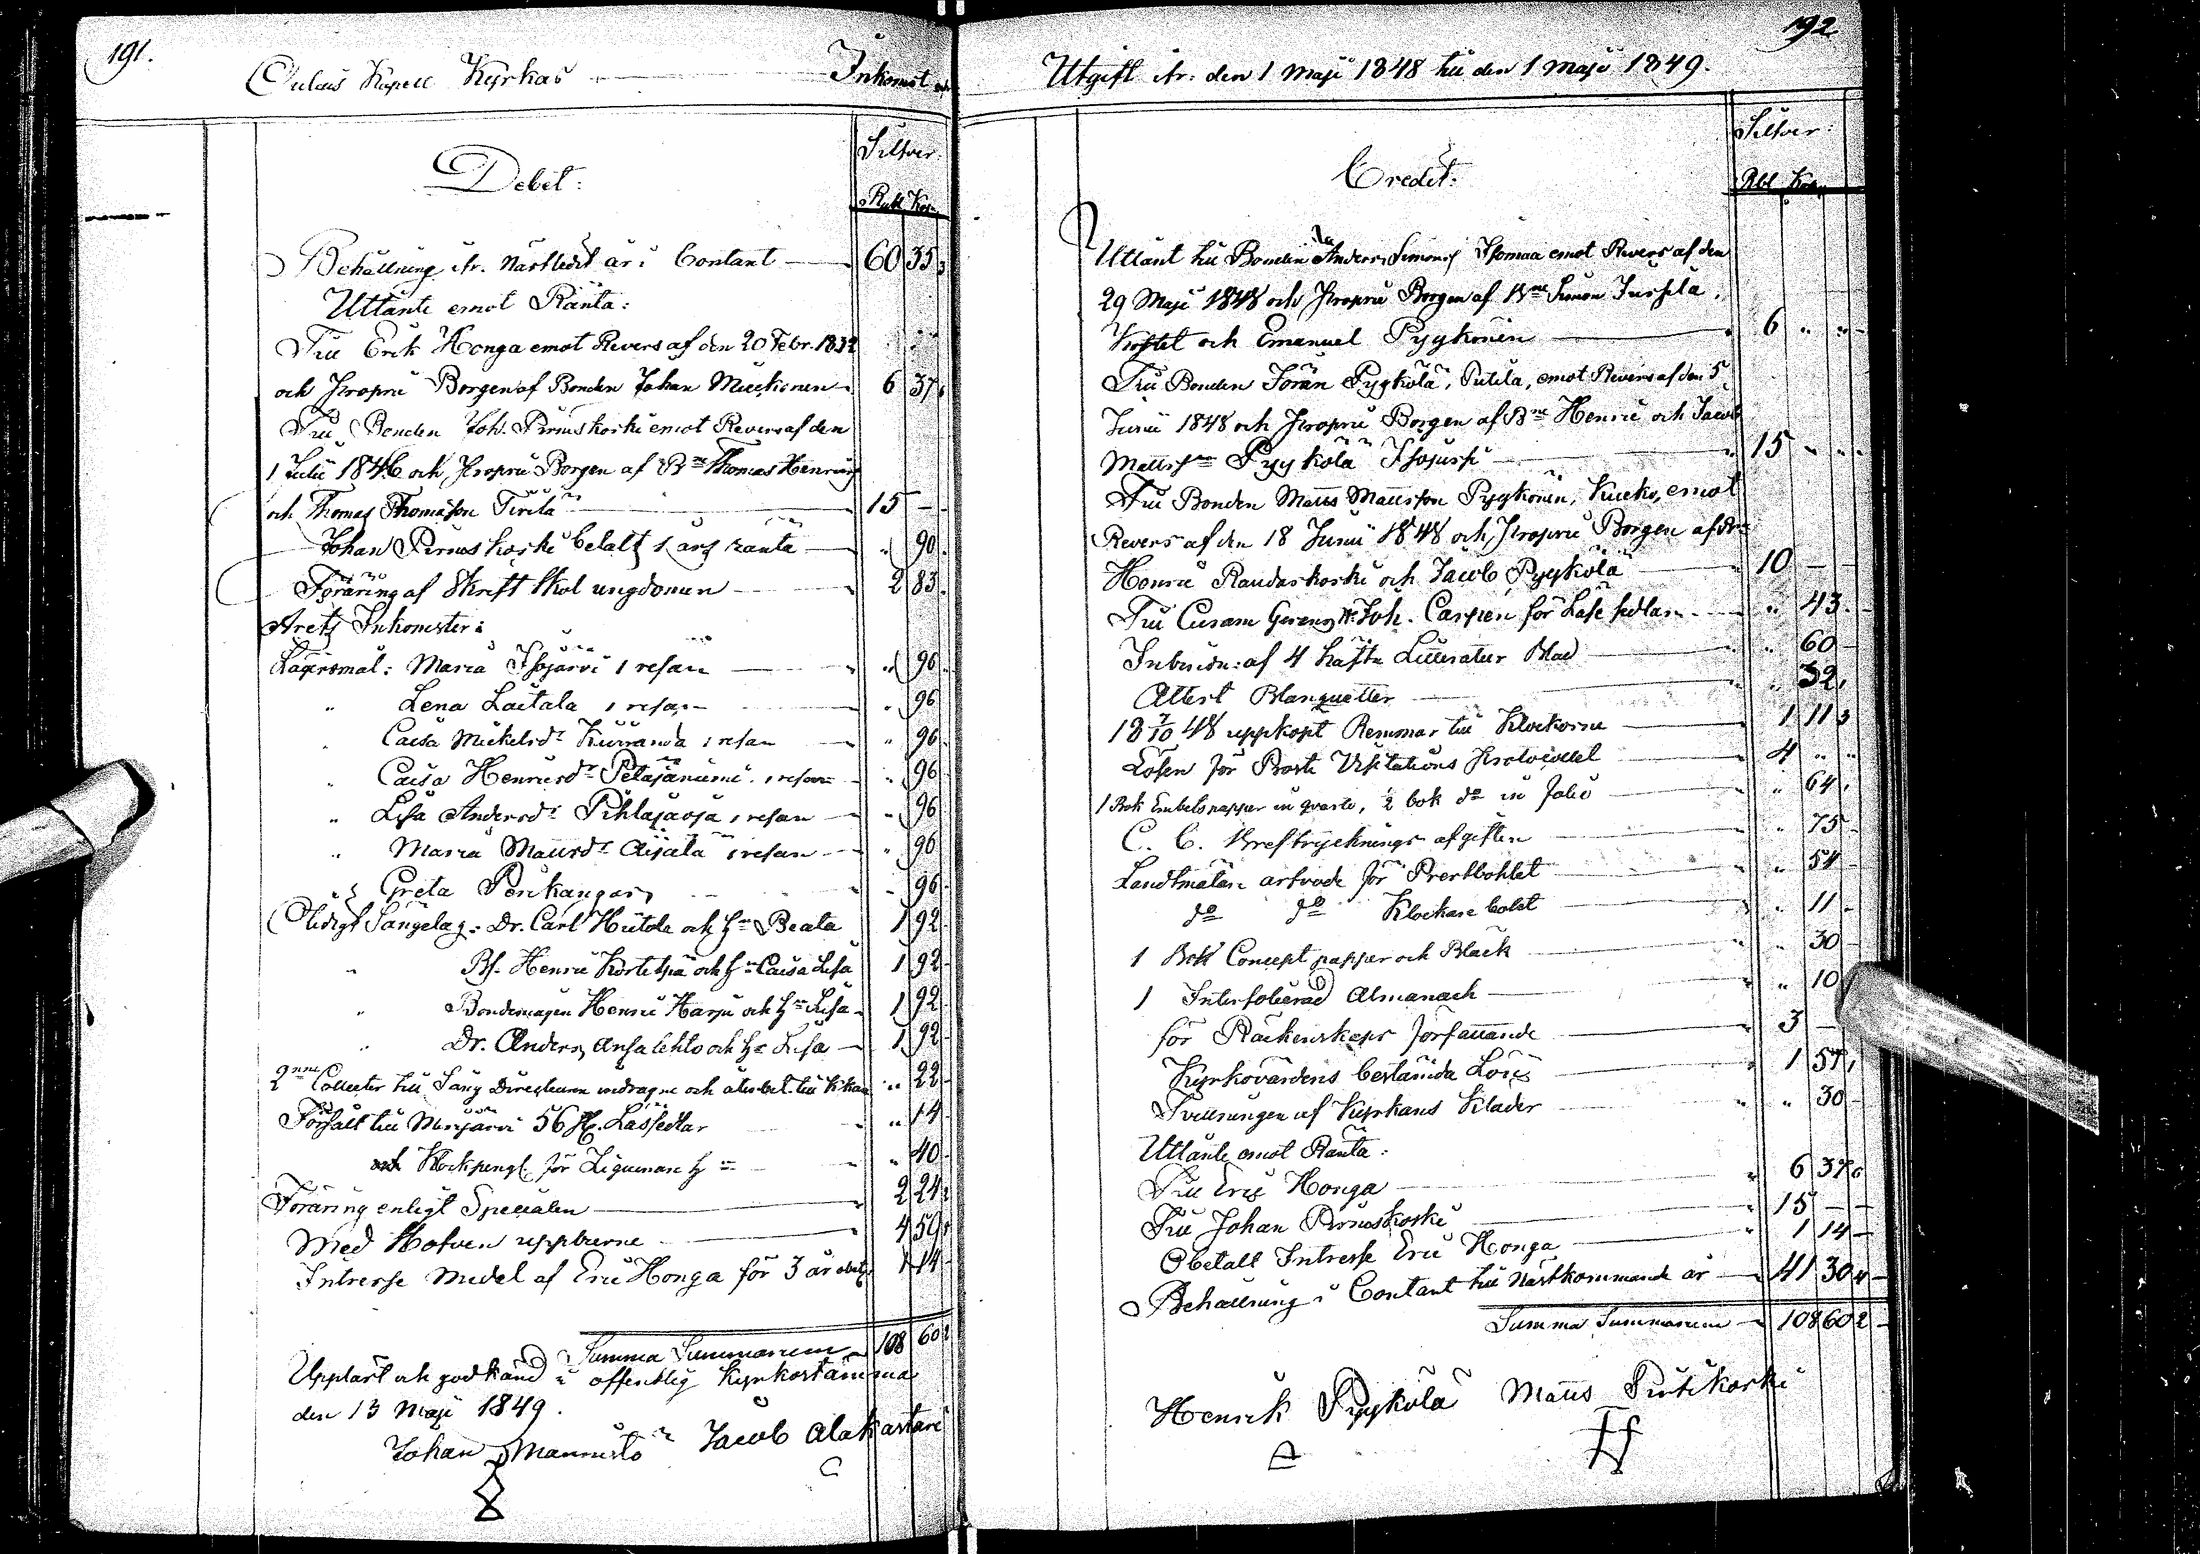 191.
Kapell Kyrkas Inkomst
Debet:
Silfver:
Rubl Kop.
Behållning ifr. Nästledit år i Contant 60 35
Utlånte emot Ränta:
Till Erik Honga emot Revers af den 20 Febr. 1832
och proprie Borgen af Bonden Johan 6 37
Till Bonden Joh. Pirneskoski emot Revers af den
1 Julii 1846 och proprie Borgen af Bn Thomas Henrics
och Thomas Thomasson 15 -
Johan Pirneskoski betalt 1 års ränta " 90.
Föräring af Skrift Skol ungdomen 2 83.
Årets Inkomster:
Lägersmål: Maria Isojärvi 1 resan " 96.
" Lena Laitala 1 resan " 96
" Caisa Mickelsdr 1 resan " 96.
" Caisa Henricsdr Petäjäniemi 1 resan " 96
" Lisa Andersdr Pihlajaoja 1 resan " 96
" Maria Mattsdr Äijälä 1 resan " 96
" Greta Porikangas - 96
Otidigt Sängelag: Dr. Carl Hiitola och hn Beata 1 92
" Henric och hn Caisa Lisa 1 92
" Bondemågen Henric Harju och hn Lisa 1 92
" Dr. Anders Ansalehto och hn Lisa 1 92
2nne Collecter till Direcktionen indragne och till " 22
Försålt till 56 st. Lässedlar " 14
Klockpengl. för " 40
Föräring enligt Specialen 2 24
Med Håfven uppburne 4 59
Intresse Medel af Eric Honga för 3 år 1 14
Summa Summarum 108 60 2
Uppläst och godkänd i offentlig Kyrkostämma
den 13 Maji 1849.
Johan Mannisto Jacob Alakastari
192
Utgift ifr. den 1 Maji 1848 till den 1 Maji 1849.
Credit:
Silfver:
Rbl Kop.
Utlånt till Bonden Anders Simonss Isomaa emot Revers af den
29 Maji 1848 och proprie Borgen af Bne Simon Jussila,
och Emanuel Pyykönen 6 " "
Till Bonden Göran Pyykölä, emot Revers af den 5
Junii 1848 och proprie Borgen af Bne Henric och Jacob
Mattsson Pyykölä Isojussi 15 " "
Till Bonden Matts Mattsson Pyykönen, emot
Revers af den 18 Junii 1848 och proprie Borgen af Bne
Henric Raudaskoski och Jacob Pyykölä 10 - -
Till Joh. för Läse sedlar " 43.
af 4 häfte Litteratur Blad " 60
Attest Blanquetter " 32,
18 7/10 48 uppköpt Remmar till Klockorne 1 11 3
Lösen för Visitations protocollet 4 " "
1 Bok Embetspapper in qvarto, ½ bok do in folio " 64.
C. C. afgiften " 75
Landtmätare arfvode för Prestbohlet " 54
do do Klockare bolet " 11
1 Bok Concept papper och Bläck " 30
1 Interfolierad Almanach " 10
för Räkenskaps författande 3 -
Kyrkovärdens bestämda Lön 1 57,
Tvättningen af Kyrkans Kläder " 30
Utlånte emot Ränta:
Till Eric Honga 6 37 6
Till Johan Pirneskoski 15 - -
Obetalt Intresse Eric Honga 1 14 -
Behållning i Contant till Nästkommande år 41 30 4
Summa Summarum 108 60 2
Henrik Pyykölä Matts